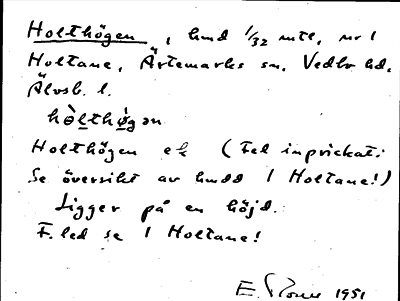 Holthögen, hmd 1/32 mtl, nr 1
Holtane, Ärtemarks sn, Vedbo hd,
Älvsb. l.
hòlthø̀gən
Holthögen ek (Fel inprickat:
Se översikt av hmdd 1 Holtane!)
Ligger på en höjd.
F. led se 1 Holtane!
E. 1951